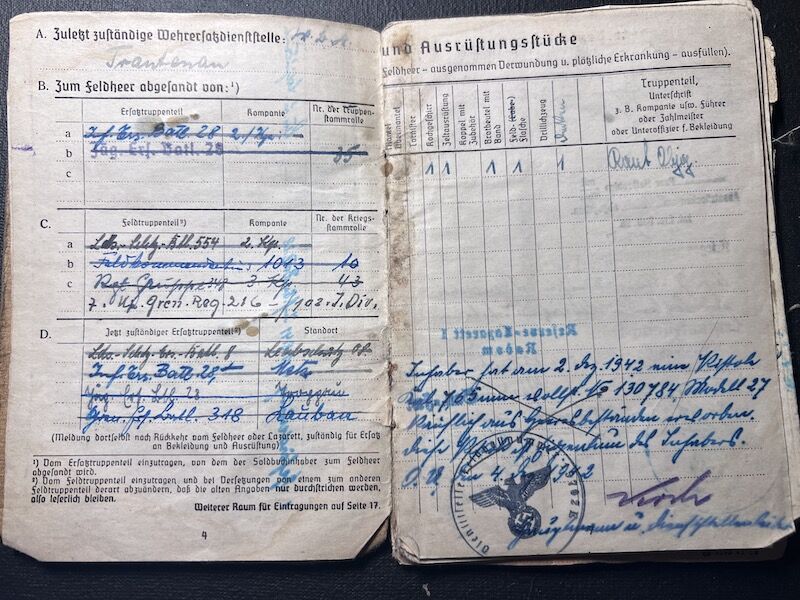 A. Zuletzt zuständige Wehrersatzdienststelle: W. B. K.
Trautenau
B. Zum Feldheer abgesandt von:¹)
Ersatztruppenteil
Kompanie
Nr. der Truppen-
stammrolle
a Inf. Ers. Batl. 28 2./
b Jäg. Ers. Batl. 28 35
c
C. Feldtruppenteil²)
Kompanie
Nr. der Kriegs-
stammrolle
a Lds.-Schtz.-Btl. 554 2. Kp.
b Feldkommandantur 1013 10
c 3 Kp. 43
7. Gren. Reg. 216 – 102. I. Div.
D. Jetzt zuständiger Ersatztruppenteil²)
Standort
Lds.-Schtz.-Ers.-Batl. 8 Leobschütz OS
Inf. Ers. Batl. 28 Metz
Jäg. Ers. Btl. 28
Gren. Ers. Batl. 318 Lauban
(Meldung dortselbst nach Rückkehr vom Feldheer oder Lazarett, zuständig für Ersatz
an Bekleidung und Ausrüstung)
¹) Vom Ersatztruppenteil einzutragen, von dem der Soldbuchinhaber zum Feldheer
abgesandt wird.
²) Vom Feldtruppenteil einzutragen und bei Versetzungen von einem zum anderen
Feldtruppenteil derart abzuändern, daß die alten Angaben nur durchstrichen werden,
also leserlich bleiben.
Weiterer Raum für Eintragungen auf Seite 17.
4
und Ausrüstungsstücke
Feldheer – ausgenommen Verwundung u. plötzliche Erkrankung – ausfüllen).
Tornister
Kochgeschirr
Zeltausrüstung
Koppel mit
Zubehör
Brotbeutel mit
Band
Feld-
flasche
Drillichzeug
Truppenteil,
Unterschrift
z. B. Kompanie usw. Führer
oder Zahlmeister
oder Unteroffizier f. Bekleidung
1 1 1 1 1
Reserve-Lazarett I
Radom
Inhaber hat am 2. Dez. 1942 eine Pistole
Kal. 7,65 mm 130784, Modell 27
käuflich aus Heeresbeständen erworben.
Diese Pistole ist Eigentum des Inhabers.
O. U., am 4. Dez. 1942
Koch
Hauptmann u. Dienststellenleiter